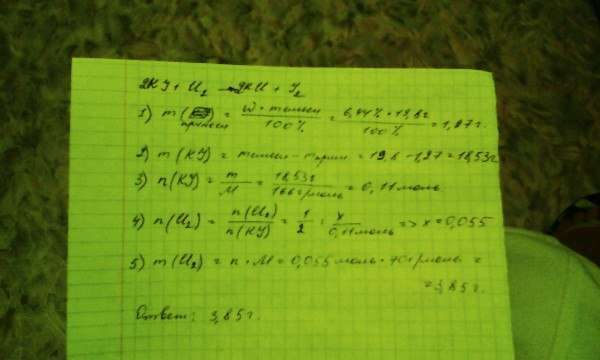 2KJ + Cl₂ → 2KCl + J₂
1) m(примеси) = ω · mсмеси / 100% = 6,44% · 19,8г / 100% = 1,27г.
2) m(KJ) = mсмеси - mприм = 19,8 - 1,27 = 18,53г
3) n(KJ) = m / M = 18,53г / 166г/моль = 0,11моль
4) n(Cl₂) = n(Cl₂) / n(KJ) = 1 / 2 = x / 0,11моль => x = 0,055
5) m(Cl₂) = n · M = 0,055моль · 70г/моль =
= 3,85г.
Ответ: 3,85г.